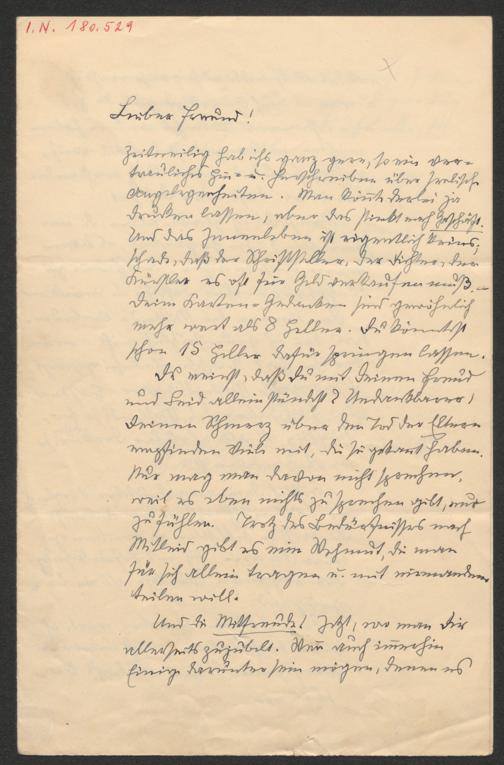 I.N. 180.529
Lieber Freund!
Zeitweilig hab ichs ganz gern, so ein ver-
trauliches Hin- u. Herschreiben über seelische
Angelegenheiten. Man könnte derlei ja
drucken lassen, aber das stinkt nach Geschäft.
Und das Innenleben ist eigentlich keins;
schade, daß der Schriftsteller, der Dichter, der
Künstler es oft für Geld verkaufen muß. –
Deine Karten-Gedanken sind gewöhnlich
mehr wert als 8 Heller. Du könntest
schon 15 Heller dafür springen lassen.
Du meinst, daß Du mit Deinen Freud
und Leid allein stündest? Undankbarer!
Deinen Schmerz über den Tod der Eltern
empfinden Viele mit, die sie gekannt haben.
Nur mag man davon nicht sprechen,
weil es eben nichts zu sprechen gibt, nur
zu fühlen. Trotz des Bedürfnisses nach
Mitleid gibt es eine Wehmut, die man
für sich allein tragen u. mit niemandem
teilen will.
Und die Mitfreude! Jetzt, wo man Dir
allerseits zujubelt. Wenn auch immerhin
Einige darunter sein mögen, denen es